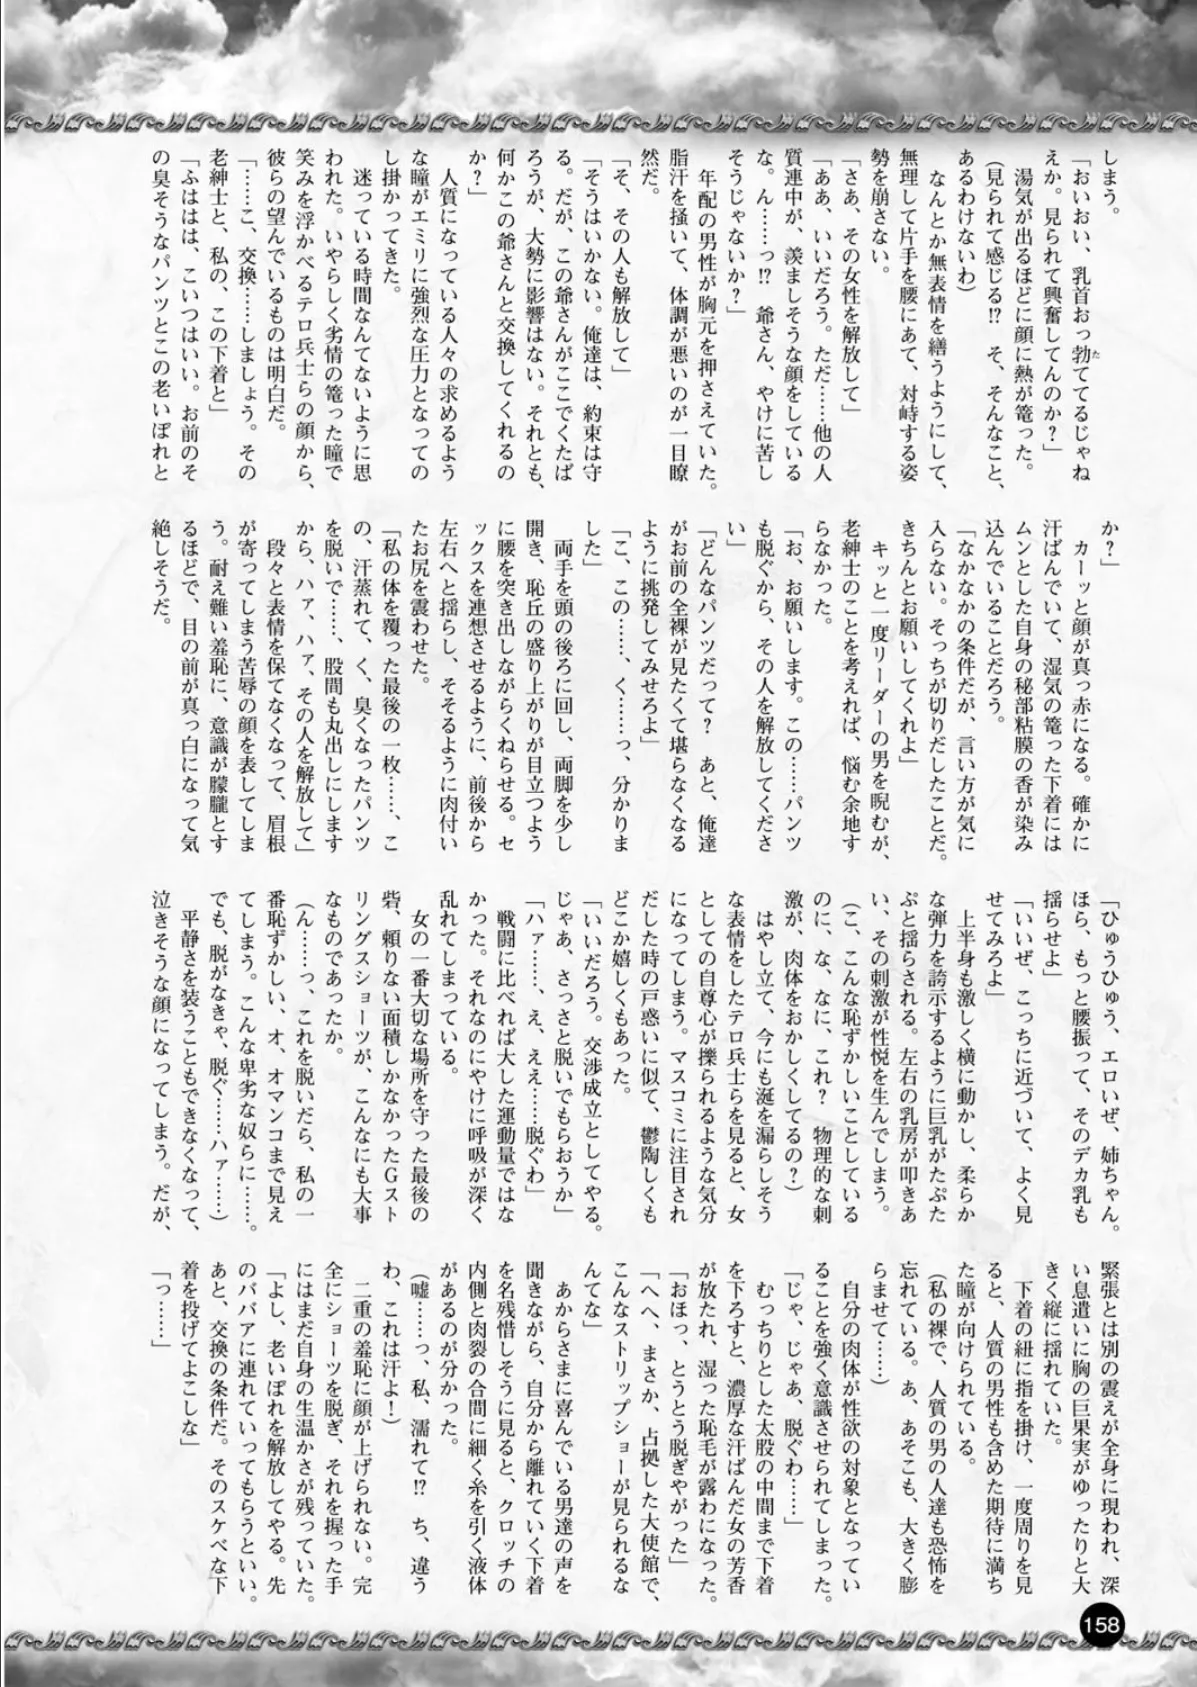 しまう。
「おいおい、乳首おっ勃ててるじゃね
えか。見られて興奮してんのか？」
湯気が出るほどに顔に熱が篭った。
（見られて感じる!?　そ、そんなこと、
あるわけないわ）
なんとか無表情を繕うようにして、
無理して片手を腰にあて、対峙する姿
勢を崩さない。
「さあ、その女性を解放して」
「ああ、いいだろう。ただ……他の人
質連中が、羨ましそうな顔をしている
な。ん……っ!?　爺さん、やけに苦し
そうじゃないか？」
年配の男性が胸元を押さえていた。
脂汗を掻いて、体調が悪いのが一目瞭
然だ。
「そ、その人も解放して」
「そうはいかない。俺達は、約束は守
る。だが、この爺さんがここでくたば
ろうが、大勢に影響はない。それとも、
何かこの爺さんと交換してくれるの
か？」
人質になっている人々の求めるよう
な瞳がエミリに強烈な圧力となっての
し掛かってきた。
迷っている時間なんてないように思
われた。いやらしく劣情の篭った瞳で
笑みを浮かべるテロ兵士らの顔から、
彼らの望んでいるものは明白だ。
「……こ、交換……しましょう。その
老紳士と、私の、この下着と」
「ふははは、こいつはいい。お前のそ
の臭そうなパンツとこの老いぼれと
か？」
カーッと顔が真っ赤になる。確かに
汗ばんでいて、湿気の篭った下着には
ムンとした自身の秘部粘膜の香が染み
込んでいることだろう。
「なかなかの条件だが、言い方が気に
入らない。そっちが切りだしたことだ。
きちんとお願いしてくれよ」
キッと一度リーダーの男を睨むが、
老紳士のことを考えれば、悩む余地す
らなかった。
「お、お願いします。この……パンツ
も脱ぐから、その人を解放してくださ
い」
「どんなパンツだって？　あと、俺達
がお前の全裸が見たくて堪らなくなる
ように挑発してみせろよ」
「こ、この……、く……っ、分かりま
した」
両手を頭の後ろに回し、両脚を少し
開き、恥丘の盛り上がりが目立つよう
に腰を突き出しながらくねらせる。セ
ックスを連想させるように、前後から
左右へと揺らし、そそるように肉付い
たお尻を震わせた。
「私の体を覆った最後の一枚……、こ
の、汗蒸れて、く、臭くなったパンツ
を脱いで……、股間も丸出しにします
から、ハァ、ハァ、その人を解放して」
段々と表情を保てなくなって、眉根
が寄ってしまう苦辱の顔を表してしま
う。耐え難い羞恥に、意識が朦朧とす
るほどで、目の前が真っ白になって気
絶しそうだ。
「ひゅうひゅう、エロいぜ、姉ちゃん。
ほら、もっと腰振って、そのデカ乳も
揺らせよ」
「いいぜ、こっちに近づいて、よく見
せてみろよ」
上半身も激しく横に動かし、柔らか
な弾力を誇示するように巨乳がたぷた
ぷと揺らされる。左右の乳房が叩きあ
い、その刺激が性悦を生んでしまう。
（こ、こんな恥ずかしいことしている
のに、な、なに、これ？　物理的な刺
激が、肉体をおかしくしてるの？）
はやし立て、今にも涎を漏らしそう
な表情をしたテロ兵士らを見ると、女
としての自尊心が擽られるような気分
になってしまう。マスコミに注目され
だした時の戸惑いに似て、鬱陶しくも
どこか嬉しくもあった。
「いいだろう。交渉成立としてやる。
じゃあ、さっさと脱いでもらおうか」
「ハァ……、え、ええ……脱ぐわ」
戦闘に比べれば大した運動量ではな
かった。それなのにやけに呼吸が深く
乱れてしまっている。
女の一番大切な場所を守った最後の
砦、頼りない面積しかなかったＧスト
リングスショーツが、こんなにも大事
なものであったか。
（ん……っ、これを脱いだら、私の一
番恥ずかしい、オ、オマンコまで見え
てしまう。こんな卑劣な奴らに……。
でも、脱がなきゃ、脱ぐ……ハァ……）
平静さを装うこともできなくなって、
泣きそうな顔になってしまう。だが、
緊張とは別の震えが全身に現われ、深
い息遣いに胸の巨果実がゆったりと大
きく縦に揺れていた。
下着の紐に指を掛け、一度周りを見
ると、人質の男性も含めた期待に満ち
た瞳が向けられている。
（私の裸で、人質の男の人達も恐怖を
忘れている。あ、あそこも、大きく膨
らませて……）
自分の肉体が性欲の対象となってい
ることを強く意識させられてしまった。
「じゃ、じゃあ、脱ぐわ……」
むっちりとした太股の中間まで下着
を下ろすと、濃厚な汗ばんだ女の芳香
が放たれ、湿った恥毛が露わになった。
「おほっ、とうとう脱ぎやがった」
「へへ、まさか、占拠した大使館で、
こんなストリップショーが見られるな
んてな」
あからさまに喜んでいる男達の声を
聞きながら、自分から離れていく下着
を名残惜しそうに見ると、クロッチの
内側と肉裂の合間に細く糸を引く液体
があるのが分かった。
（嘘……っ、私、濡れて!?　ち、違う
わ、これは汗よ！）
二重の羞恥に顔が上げられない。完
全にショーツを脱ぎ、それを握った手
にはまだ自身の生温かさが残っていた。
「よし、老いぼれを解放してやる。先
のババアに連れていってもらうといい。
あと、交換の条件だ。そのスケベな下
着を投げてよこしな」
「っ……」
158